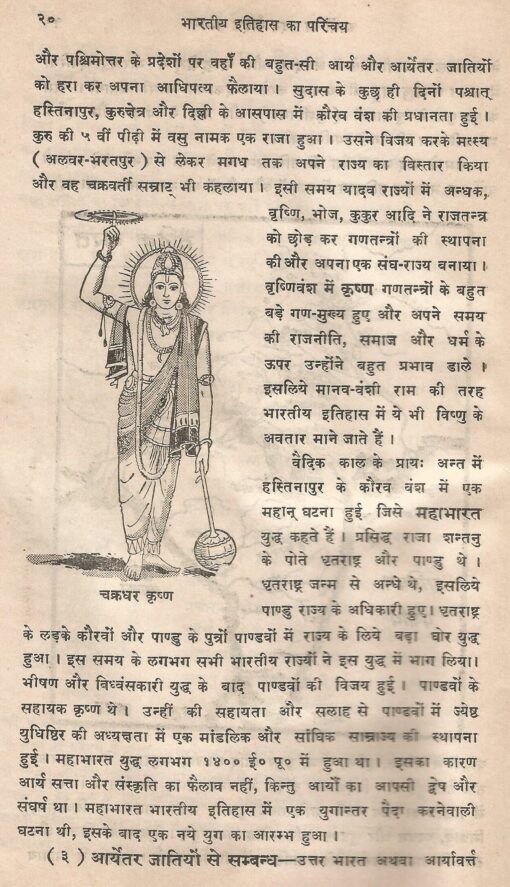 २०
भारतीय इतिहास का परिचय
और पश्चिमोत्तर के प्रदेशों पर वहाँ की बहुत-सी आर्य और आर्येतर जातियों
को हरा कर अपना आधिपत्य फैलाया। सुदास के कुछ ही दिनों पश्चात्
हस्तिनापुर, कुरुक्षेत्र और दिल्ली के आसपास में कौरव वंश की प्रधानता हुई।
कुरु की ५ वीं पीढ़ी में वसु नामक एक राजा हुआ। उसने विजय करके मत्स्य
(अलवर-भरतपुर) से लेकर मगध तक अपने राज्य का विस्तार किया
और वह चक्रवर्ती सम्राट् भी कहलाया। इसी समय यादव राज्यों में अन्धक,
वृष्णि, भोज, कुकुर आदि ने राजतन्त्र
को छोड़ कर गणतन्त्रों की स्थापना
की और अपना एक संघ-राज्य बनाया।
वृष्णिवंश में कृष्ण गणतन्त्रों के बहुत
बड़े गण-मुख्य हुए और अपने समय
की राजनीति, समाज और धर्म के
ऊपर उन्होंने बहुत प्रभाव डाले।
इसलिये मानव-वंशी राम की तरह
भारतीय इतिहास में ये भी विष्णु के
अवतार माने जाते हैं।
वैदिक काल के प्रायः अन्त में
हस्तिनापुर के कौरव वंश में एक
महान् घटना हुई जिसे महाभारत
युद्ध कहते हैं। प्रसिद्ध राजा शन्तनु
के पोते धृतराष्ट्र और पाण्डु थे।
धृतराष्ट्र जन्म से अन्धे थे, इसलिये
पाण्डु राज्य के अधिकारी हुए। धृतराष्ट्र
चक्रधर कृष्ण
के लड़के कौरवों और पाण्डु के पुत्रों पाण्डवों में राज्य के लिये बड़ा घोर युद्ध
हुआ। इस समय के लगभग सभी भारतीय राज्यों ने इस युद्ध में भाग लिया।
भीषण और विध्वंसकारी युद्ध के बाद पाण्डवों की विजय हुई। पाण्डवों के
सहायक कृष्ण थे। उन्हीं की सहायता और सलाह से पाण्डवों में ज्येष्ठ
युधिष्ठिर की अध्यक्षता में एक मांडलिक और सांघिक साम्राज्य की स्थापना
हुई। महाभारत युद्ध लगभग १४०० ई० पू० में हुआ था। इसका कारण
आर्य सत्ता और संस्कृति का फैलाव नहीं, किन्तु आर्यों का आपसी द्वेष और
संघर्ष था। महाभारत भारतीय इतिहास में एक युगान्तर पैदा करनेवाली
घटना थी, इसके बाद एक नये युग का आरम्भ हुआ।
(३) आर्येतर जातियों से सम्बन्ध—उत्तर भारत अथवा आर्यावर्त्त